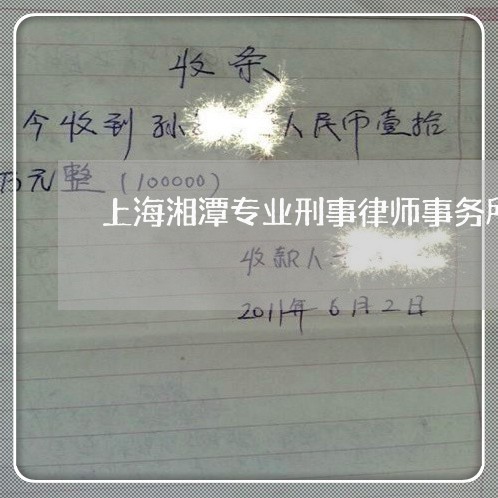 收条
今收到孙 人民币壹拾
万元整(100000)
上海湘潭专业刑事律师事务所
收款人
2011年6月2日